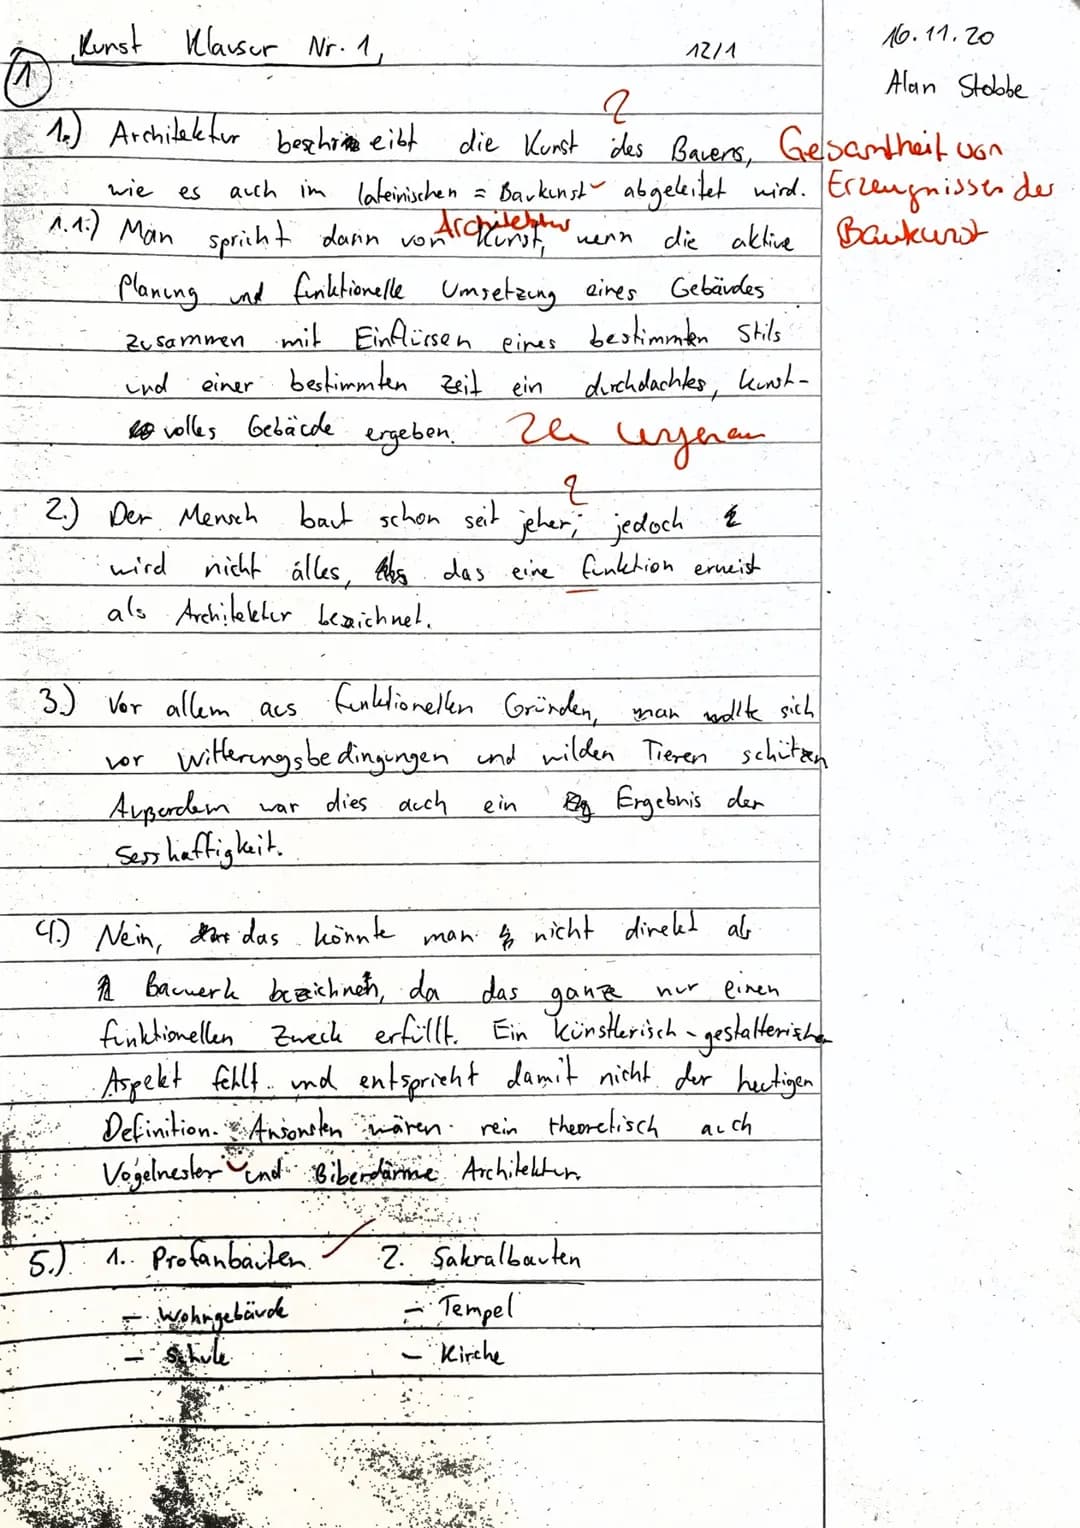 Kunst Klausur Nr. 1, 12/1 16.11.20
① Alan Stobbe
?
1.) Architektur beschreibt die Kunst des Bauens, Gesamtheit von
wie es auch im lateinischen = Baukunst abgeleitet wird. Erzeugnissen der
Architektur Baukunst
1.1.) Man spricht dann von Kunst, wenn die aktive
Planung und funktionelle Umsetzung eines Gebäudes
zusammen mit Einflüssen eines bestimmten Stils
und einer bestimmten Zeit ein durchdachtes, kunst-
volles Gebäude ergeben. zu ungenau
?
2.) Der Mensch baut schon seit jeher; jedoch
wird nicht alles, das eine Funktion erweist
als Architektur bezeichnet.
3.) Vor allem aus funktionellen Gründen, man wollte sich
vor Witterungsbedingungen und wilden Tieren schützen
Außerdem war dies auch ein Ergebnis der
Sesshaftigkeit.
4.) Nein, das könnte man nicht direkt als
Bauwerk bezeichnen, da das ganze nur einen
funktionellen Zweck erfüllt. Ein künstlerisch-gestalterischer
Aspekt fehlt und entspricht damit nicht der heutigen
Definition. Ansonsten wären rein theoretisch auch
Vogelnester und Biberdämme Architektur.
5.) 1. Profanbauten 2. Sakralbauten
- Wohngebäude - Tempel
- Schule - Kirche